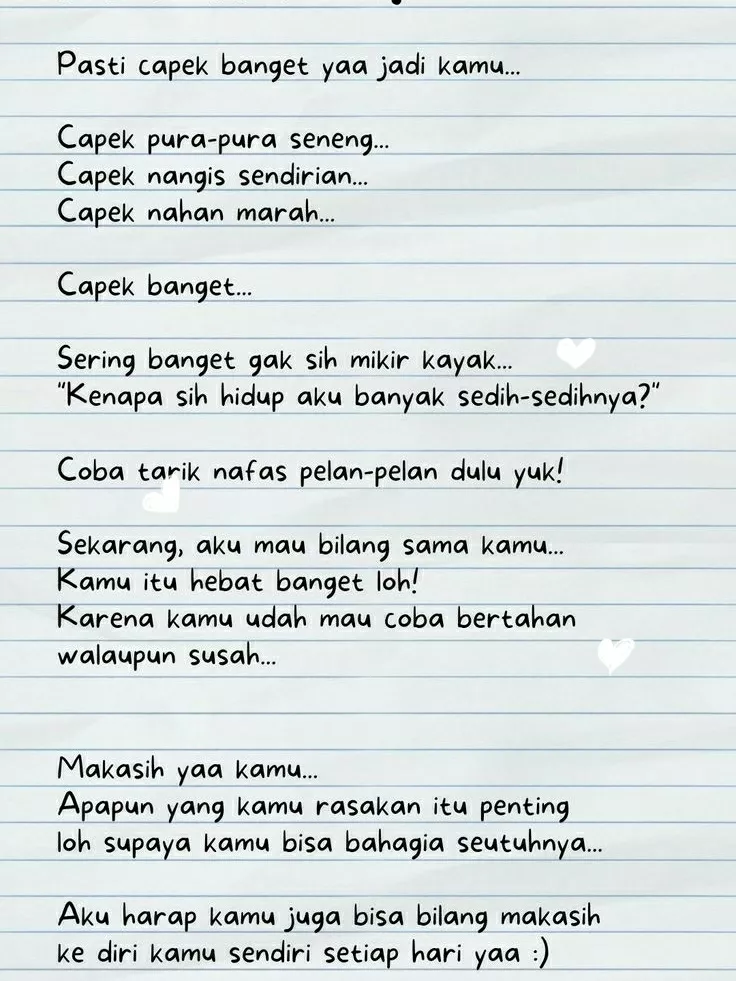 Pasti capek banget yaa jadi kamu...
Capek pura-pura seneng...
Capek nangis sendirian...
Capek nahan marah...
Capek banget...
Sering banget gak sih mikir kayak...
"Kenapa sih hidup aku banyak sedih-sedihnya?"
Coba tarik nafas pelan-pelan dulu yuk!
Sekarang, aku mau bilang sama kamu...
Kamu itu hebat banget loh!
Karena kamu udah mau coba bertahan
walaupun susah...
Makasih yaa kamu...
Apapun yang kamu rasakan itu penting
loh supaya kamu bisa bahagia seutuhnya...
Aku harap kamu juga bisa bilang makasih
ke diri kamu sendiri setiap hari yaa :)